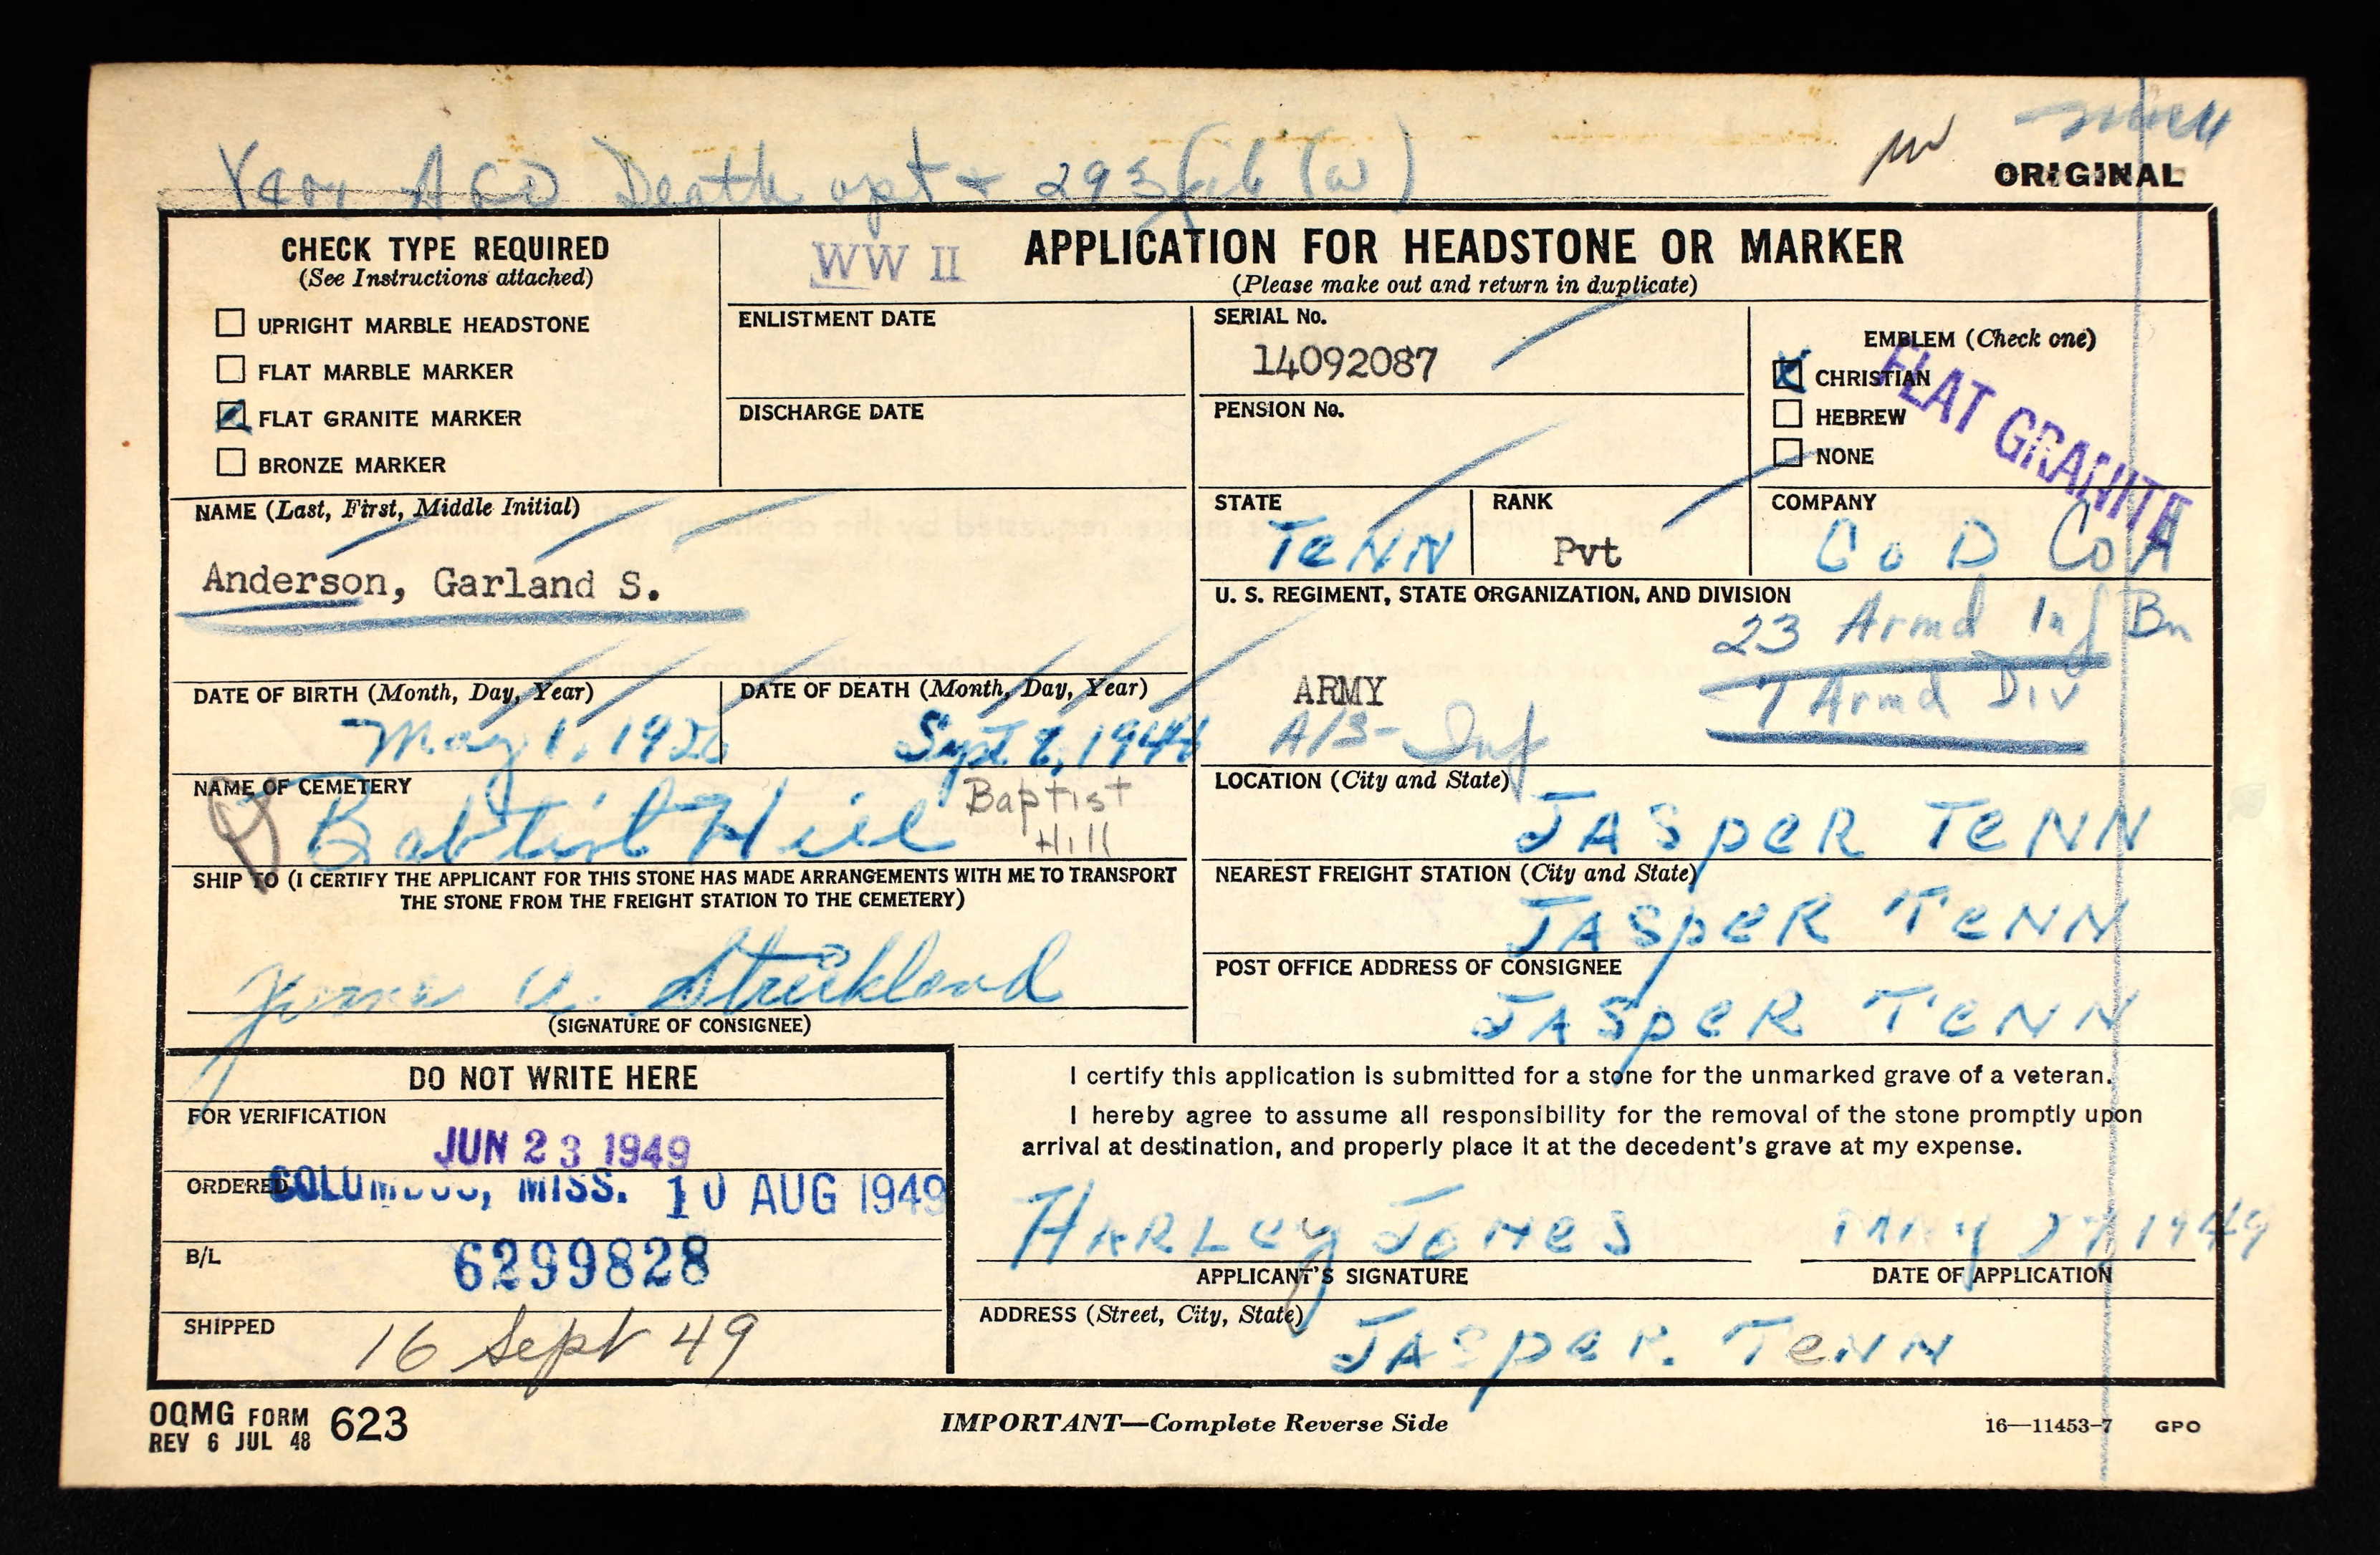 Death 293 file (w)
ORIGINAL
CHECK TYPE REQUIRED
(See Instructions attached)
UPRIGHT MARBLE HEADSTONE
FLAT MARBLE MARKER
FLAT GRANITE MARKER
BRONZE MARKER
WW II
APPLICATION FOR HEADSTONE OR MARKER
(Please make out and return in duplicate)
ENLISTMENT DATE
DISCHARGE DATE
SERIAL No.
14092087
PENSION No.
EMBLEM (Check one)
X CHRISTIAN
HEBREW
NONE
FLAT GRANITE
NAME (Last, First, Middle Initial)
Anderson, Garland S.
STATE
TeNN
RANK
Pvt
COMPANY
Co D Co A
U. S. REGIMENT, STATE ORGANIZATION, AND DIVISION
23 Armd Inf Bn
ARMY
7 Armd Div
Inf
DATE OF BIRTH (Month, Day, Year)
May 1, 192
DATE OF DEATH (Month, Day, Year)
Sept 194
NAME OF CEMETERY
Baptist Hill
Baptist
Hill
LOCATION (City and State)
JASpeR TeNN
SHIP TO (I CERTIFY THE APPLICANT FOR THIS STONE HAS MADE ARRANGEMENTS WITH ME TO TRANSPORT
THE STONE FROM THE FREIGHT STATION TO THE CEMETERY)
Strickland
(SIGNATURE OF CONSIGNEE)
NEAREST FREIGHT STATION (City and State)
JASpeR TeNN
POST OFFICE ADDRESS OF CONSIGNEE
JASpeR TeNN
DO NOT WRITE HERE
FOR VERIFICATION
JUN 23 1949
ORDERED
COLUMBUS, MISS. 10 AUG 1949
B/L
6299828
SHIPPED
16 Sept 49
I certify this application is submitted for a stone for the unmarked grave of a veteran.
I hereby agree to assume all responsibility for the removal of the stone promptly upon
arrival at destination, and properly place it at the decedent's grave at my expense.
HARLey JoNes
APPLICANT'S SIGNATURE
MAy 27 1949
DATE OF APPLICATION
ADDRESS (Street, City, State)
JASpeR. TeNN
OQMG FORM 623
REV 6 JUL 48
IMPORTANT—Complete Reverse Side
16—11453-7 GPO